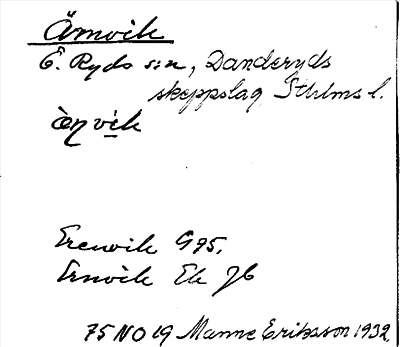 Ärnvik
Ö. Ryds sn, Danderyds
skeppslag Sthlms l.
Erenvik G95.
Ernvik Ek Jb
75 NO 19 Manne Eriksson 1932.